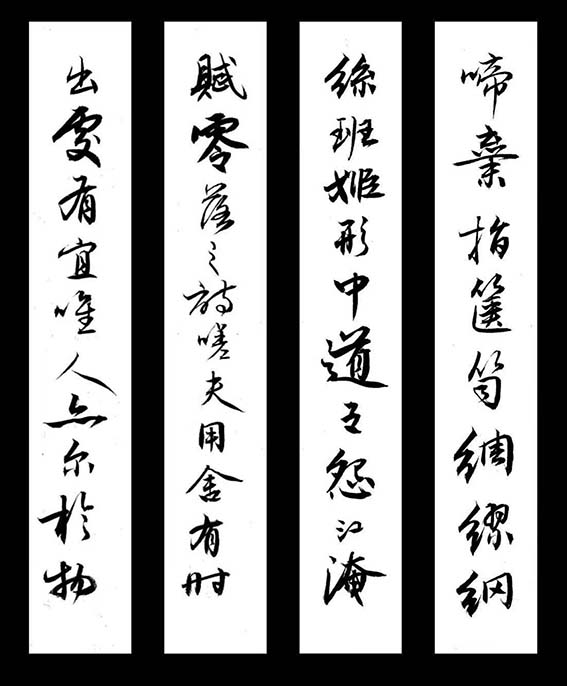 啼棄捐篋笥綢繆網
絲班姬形中道之怨江淹
賦零落之詩嗟夫用舍有时
出處有宜唯人亦尔於物